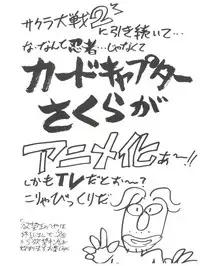 サクラ大戦2に引き続いて…
な・なんと忍者…じゃなくて
カードキャプター
さくらが
アニメ化ぁ〜!!
しかもTVだとぉ〜?
こりゃびっくりだ